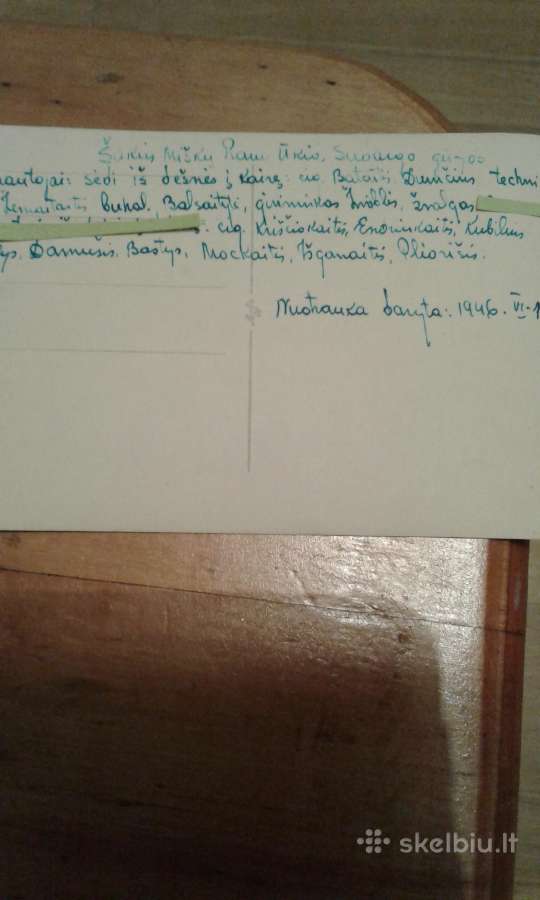 Šakių Miškų Pram Ūkio, Sudargo gir-jos
nautojai: sėdi iš dešnės į kairę: eig. Bataitis, Drunčius techni
Žemaitaitis buhal. Balsaitytė, girininkas žvalgas
eig. Kriščiokaitis, Endriukaitis, Kubilius
ys, Damušis, Bastys, Mockaitis, Išganaitis, Pliorišis.
Nuotrauka daryta: 1946. VI-1
skelbiu.lt